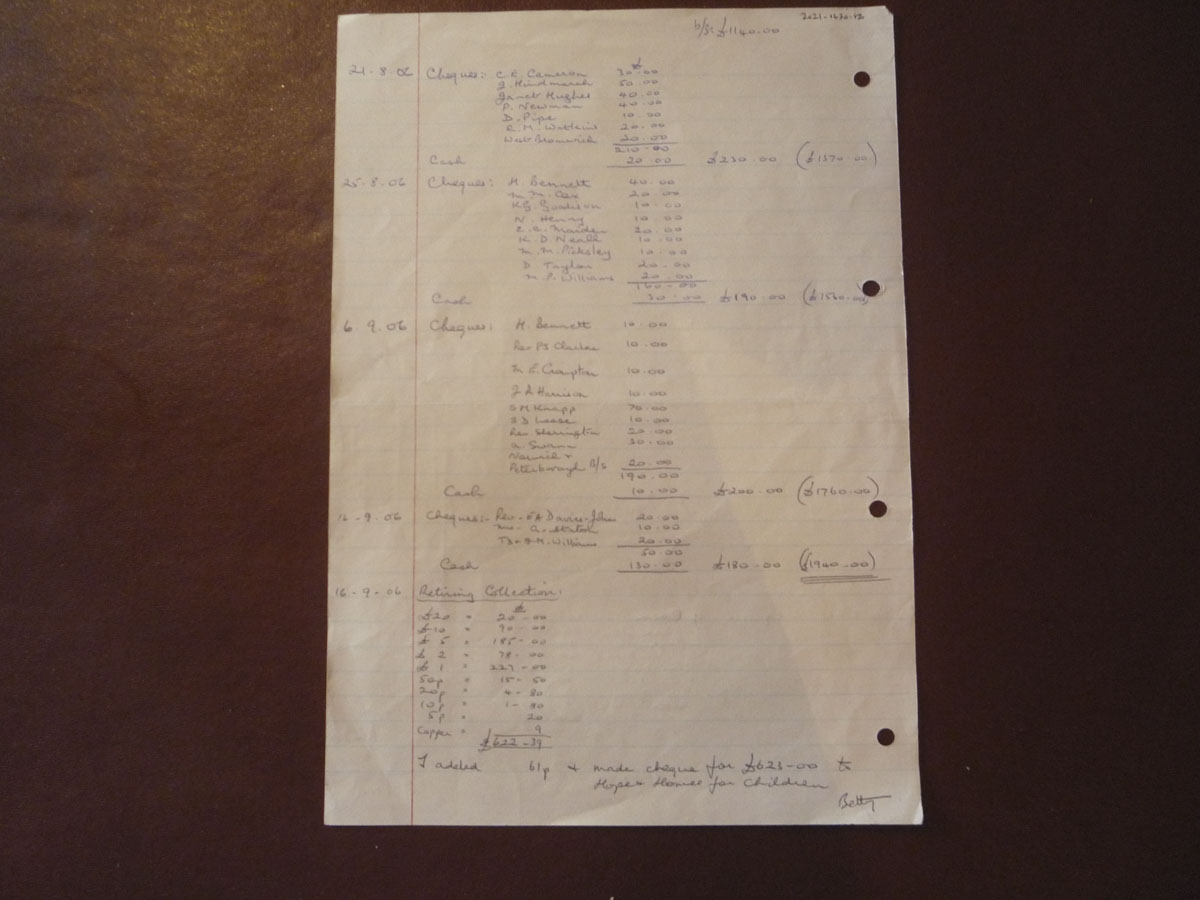 2021-1630-12
b/f: £1140.00
£
21-8-06 Cheques: C. E. Cameron 30.00
J. Hindmarsh 50.00
Janet Hughes 40.00
P. Newman 40.00
D. Pipe 10.00
E. M. Watkins 20.00
West Bromwich 20.00
210.00
Cash 20.00 £230.00 (£1370.00)
25-8-06 Cheques: H. Bennett 40.00
M. M. Cox 20.00
K.G. Goodison 10.00
N. Henry 10.00
E. E. Maiden 20.00
K. D. Neale 10.00
M. M. Picksley 10.00
D. Taylor 20.00
M. P. Williams 20.00
160.00
Cash 30.00 £190.00 (£1560.00)
6.9.06 Cheques: H. Bennett 10.00
Rev PS Clarke 10.00
M. E. Crampton 10.00
J A Harrison 10.00
S M Knapp 70.00
S D Lease 10.00
Rev Sherrington 20.00
A. Swann 30.00
Norwich +
Peterborough B/S 20.00
190.00
Cash 10.00 £200.00 (£1760.00)
16-9-06 Cheques:- Rev. EA Davies-Johns 20.00
Mrs. A. 10.00
T3 & J.M. Williams 20.00
50.00
Cash 130.00 £180.00 (£1940.00)
16-9-06 Retiring Collection:
£
£20 " 20-00
£10 " 90-00
£ 5 " 185-00
£ 2 " 78-00
£ 1 " 227-00
50p " 15-50
20p " 4-80
10p " 1-80
5p " 20
Copper " 9
£622-39
I added 61p + made cheque for £623-00 to
Hope & Homes for Children
Betty